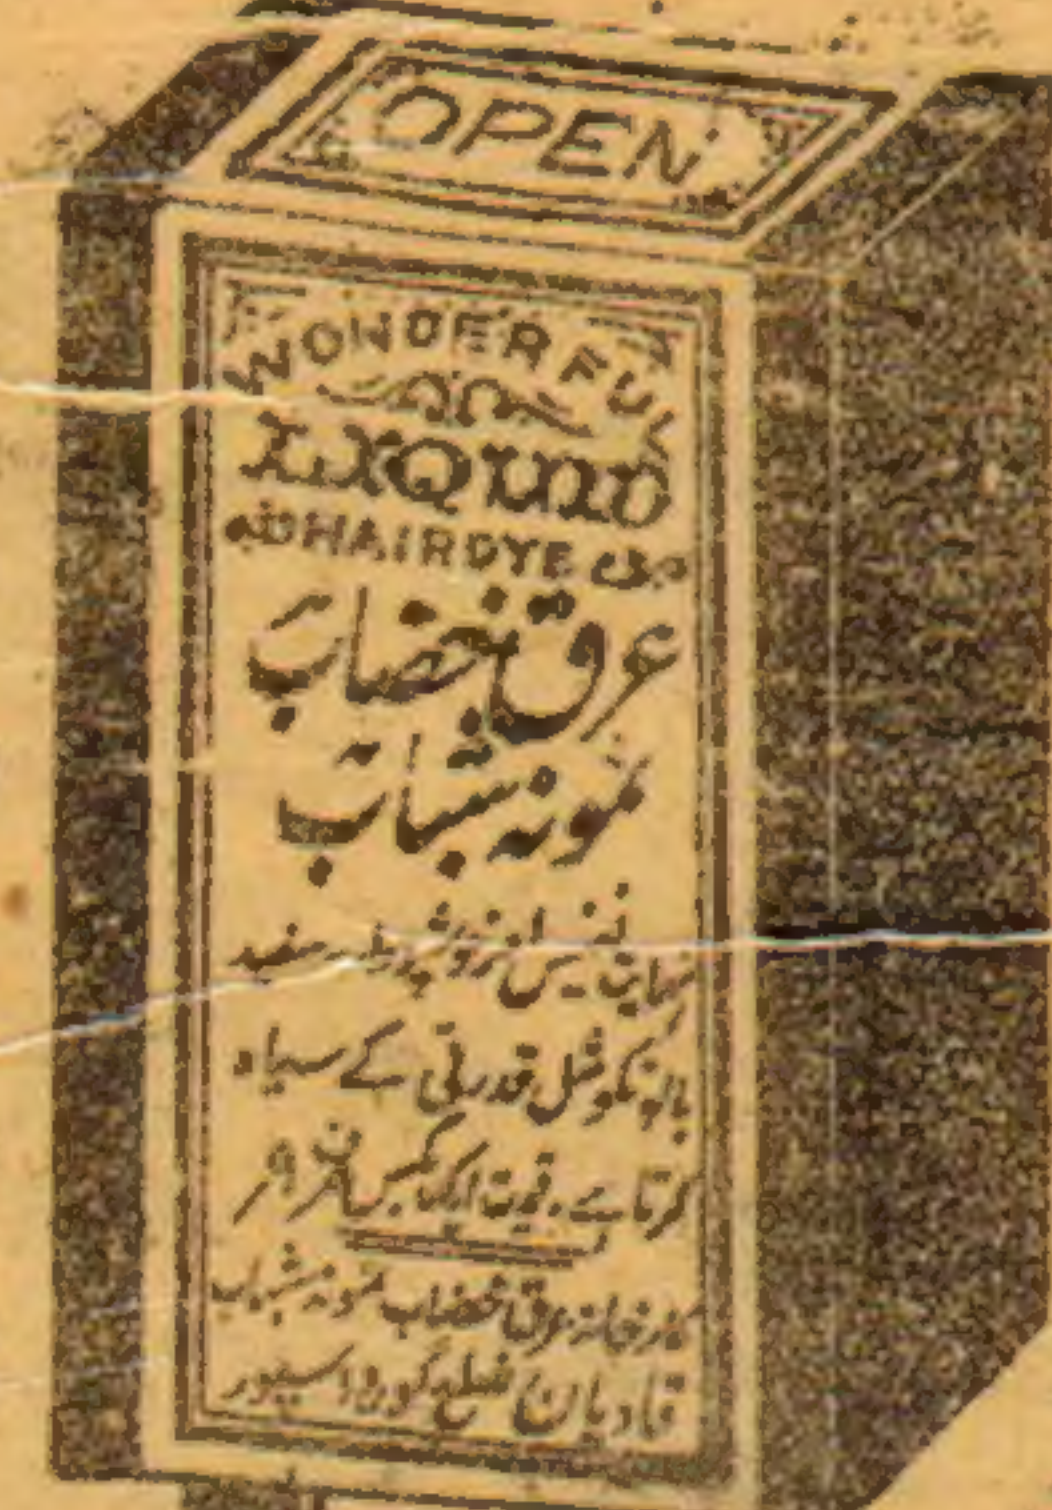 OPEN
WONDERFUL
LIQUID
HAIR DYE
عرق خضاب
نمونہ شباب
نہایت نفیس سفید
بالونکو مثل قدرتی کے سیاہ
کرتا ہے۔ قیمت ایک بکس
کارخانہ عرق خضاب نمونہ شباب
قادیان ضلع گورداسپور